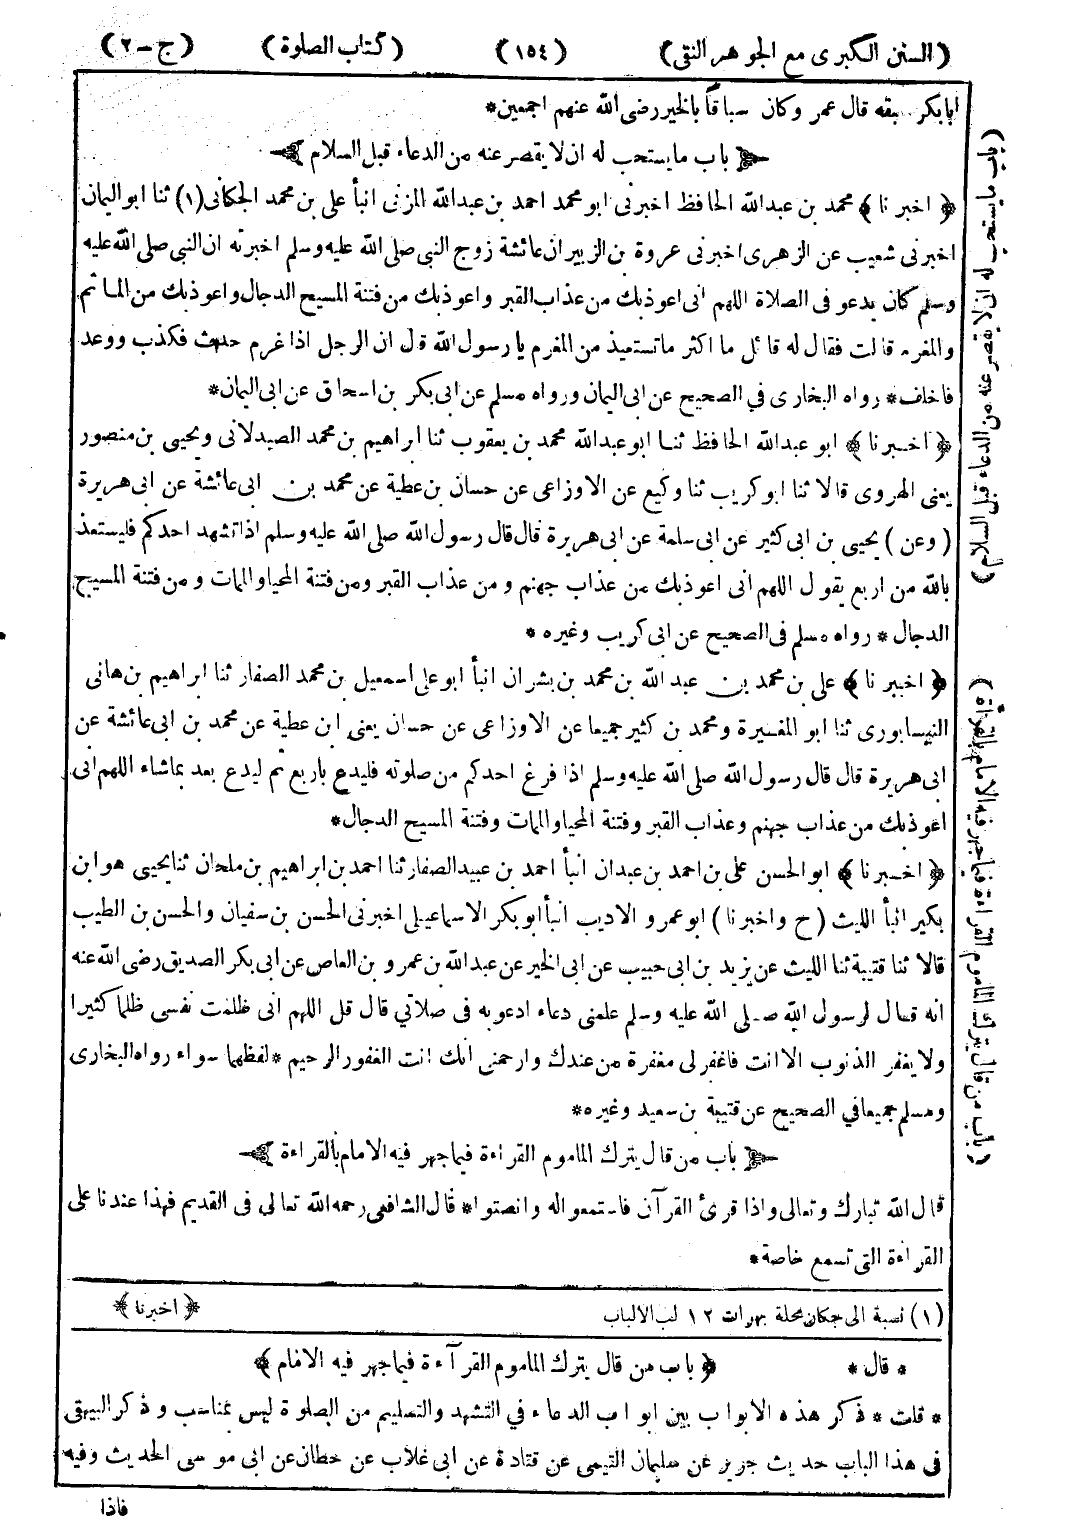 (السنن الكبرى مع الجوهر النقى) (١٥٤) (كتاب الصلوة) (ج-٢)
ابابكر سبقه قال عمر وكان سباقا بالخير رضى الله عنهم اجمعين*
باب ما يستحب له ان لا يقصر عنه من الدعاء قبل السلام
﴿ اخبرنا ﴾ محمد بن عبدالله الحافظ اخبرنى ابو محمد احمد بن عبدالله المزنى انبأ على بن محمد الجكانى (١) ثنا ابو اليمان
اخبرنى شعيب عن الزهرى اخبرنى عروة بن الزبير ان عائشة زوج النبى صلى الله عليه وسلم اخبرته ان النبى صلى الله عليه
وسلم كان يدعو فى الصلاة اللهم انى اعوذ بك من عذاب القبر واعوذ بك من فتنة المسيح الدجال واعوذ بك من المأثم
والمغرم قالت فقال له قائل ما اكثر ما تستعيذ من المغرم يا رسول الله قال ان الرجل اذا غرم حدث فكذب ووعد
فاخلف* رواه البخارى في الصحيح عن ابى اليمان ورواه مسلم عن ابى بكر بن اسحاق عن ابى اليمان*
﴿ اخبرنا ﴾ ابو عبدالله الحافظ ثنا ابو عبدالله محمد بن يعقوب ثنا ابراهيم بن محمد الصيدلانى ويحيى بن منصور
يعنى الهروى قالا ثنا ابو كريب ثنا وكيع عن الاوزاعى عن حسان بن عطية عن محمد بن ابى عائشة عن ابى هريرة
(وعن) يحيى بن ابى كثير عن ابى سلمة عن ابى هريرة قال قال رسول الله صلى الله عليه وسلم اذا تشهد احدكم فليستعذ
بالله من اربع يقول اللهم انى اعوذ بك من عذاب جهنم و من عذاب القبر ومن فتنة المحيا والممات و من فتنة المسيح
الدجال * رواه مسلم فى الصحيح عن ابى كريب وغيره *
﴿ اخبرنا ﴾ على بن محمد بن عبد الله بن محمد بن بشران انبأ ابو على اسمعيل بن محمد الصفار ثنا ابراهيم بن هانى
النيسابورى ثنا ابو المغيرة ومحمد بن كثير جميعا عن الاوزاعى عن حسان يعنى ابن عطية عن محمد بن ابى عائشة عن
ابى هريرة قال قال رسول الله صلى الله عليه وسلم اذا فرغ احدكم من صلوته فليدع باربع ثم ليدع بعد بما شاء اللهم انى
اعوذ بك من عذاب جهنم وعذاب القبر وفتنة المحيا والممات وفتنة المسيح الدجال*
﴿ اخبرنا ﴾ ابو الحسن على بن احمد بن عبدان انبأ احمد بن عبيد الصفار ثنا احمد بن ابراهيم بن ملحان ثنا يحيى هو ابن
بكير انبأ الليث (ح واخبرنا) ابو عمرو الاديب انبأ ابو بكر الاسماعيلى اخبرنى الحسن بن سفيان والحسن بن الطيب
قالا ثنا قتيبة ثنا الليث عن يزيد بن ابى حبيب عن ابى الخير عن عبدالله بن عمرو بن العاص عن ابى بكر الصديق رضى الله عنه
انه قال لرسول الله صلى الله عليه وسلم علمنى دعاء ادعو به فى صلاتي قال قل اللهم انى ظلمت نفسى ظلما كثيرا
ولا يغفر الذنوب الا انت فاغفر لى مغفرة من عندك وارحمنى انك انت الغفور الرحيم *لفظهما سواء رواه البخارى
ومسلم جميعا في الصحيح عن قتيبة بن سعيد وغيره*
باب من قال يترك الماموم القراءة فيما جهر فيه الامام بالقراءة
قال الله تبارك وتعالى واذا قرئ القرآن فاستمعوا له وانصتوا* قال الشافعى رحمه الله تعالى فى القديم فهذا عندنا على
القراءة التى تسمع خاصة*
(١) نسبة الى جكان محلة بهرات ١٢ لب الالباب ﴿ اخبرنا ﴾
* قال * ﴿ باب من قال يترك الماموم القرآءة فيما جهر فيه الامام ﴾
* قلت * ذكر هذه الابواب بين ابواب الدعاء في التشهد والتسليم من الصلوة ليس بمناسب وذكر البيهقى
فى هذا الباب حديث جرير عن سليمان التيمى عن قتادة عن ابى غلاب عن حطان عن ابى موسى الحديث وفيه
فاذا
(باب ما يستحب له ان لا يقصر عنه من الدعاء قبل السلام)
(باب من قال يترك الماموم القراءة فيما جهر فيه الامام بالقراءة)